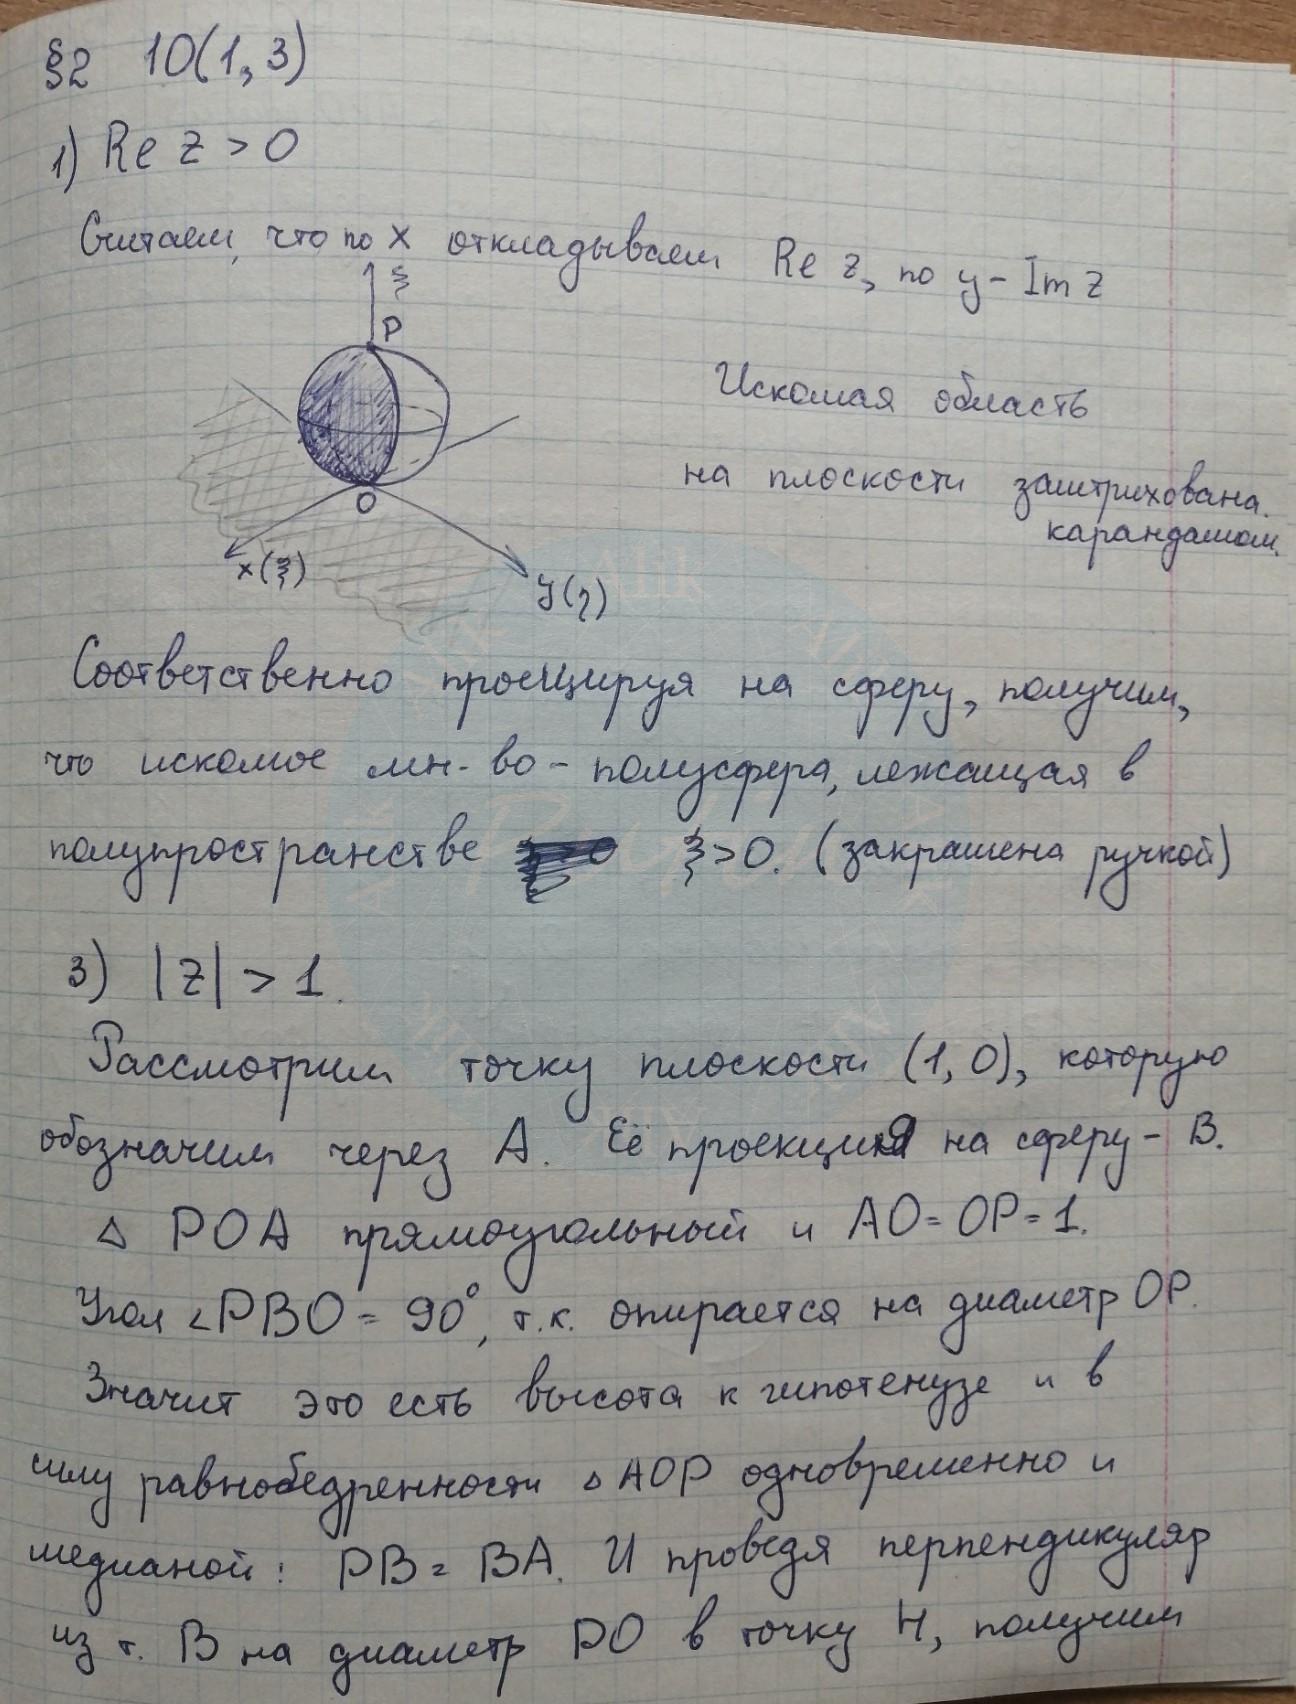 §2 10(1,3)
1) Re z > 0
Считаем, что по x откладываем Re z, по y - Im z
ξ
P
Искомая область
на плоскости заштрихована
карандашом.
O
x(ξ)
y(η)
Соответственно проецируя на сферу, получим,
что искомое мн-во - полусфера, лежащая в
полупространстве ξ>0. (закрашена ручкой)
3) |z| > 1.
Рассмотрим точку плоскости (1,0), которую
обозначим через A. Её проекция на сферу - B.
△ POA прямоугольный и AO = OP = 1.
Угол ∠PBO = 90°, т.к. опирается на диаметр OP.
Значит это есть высота к гипотенузе и в
силу равнобедренности △ AOP одновременно и
медианой: PB = BA. И проведя перпендикуляр
из т. B на диаметр PO в точку H, получим